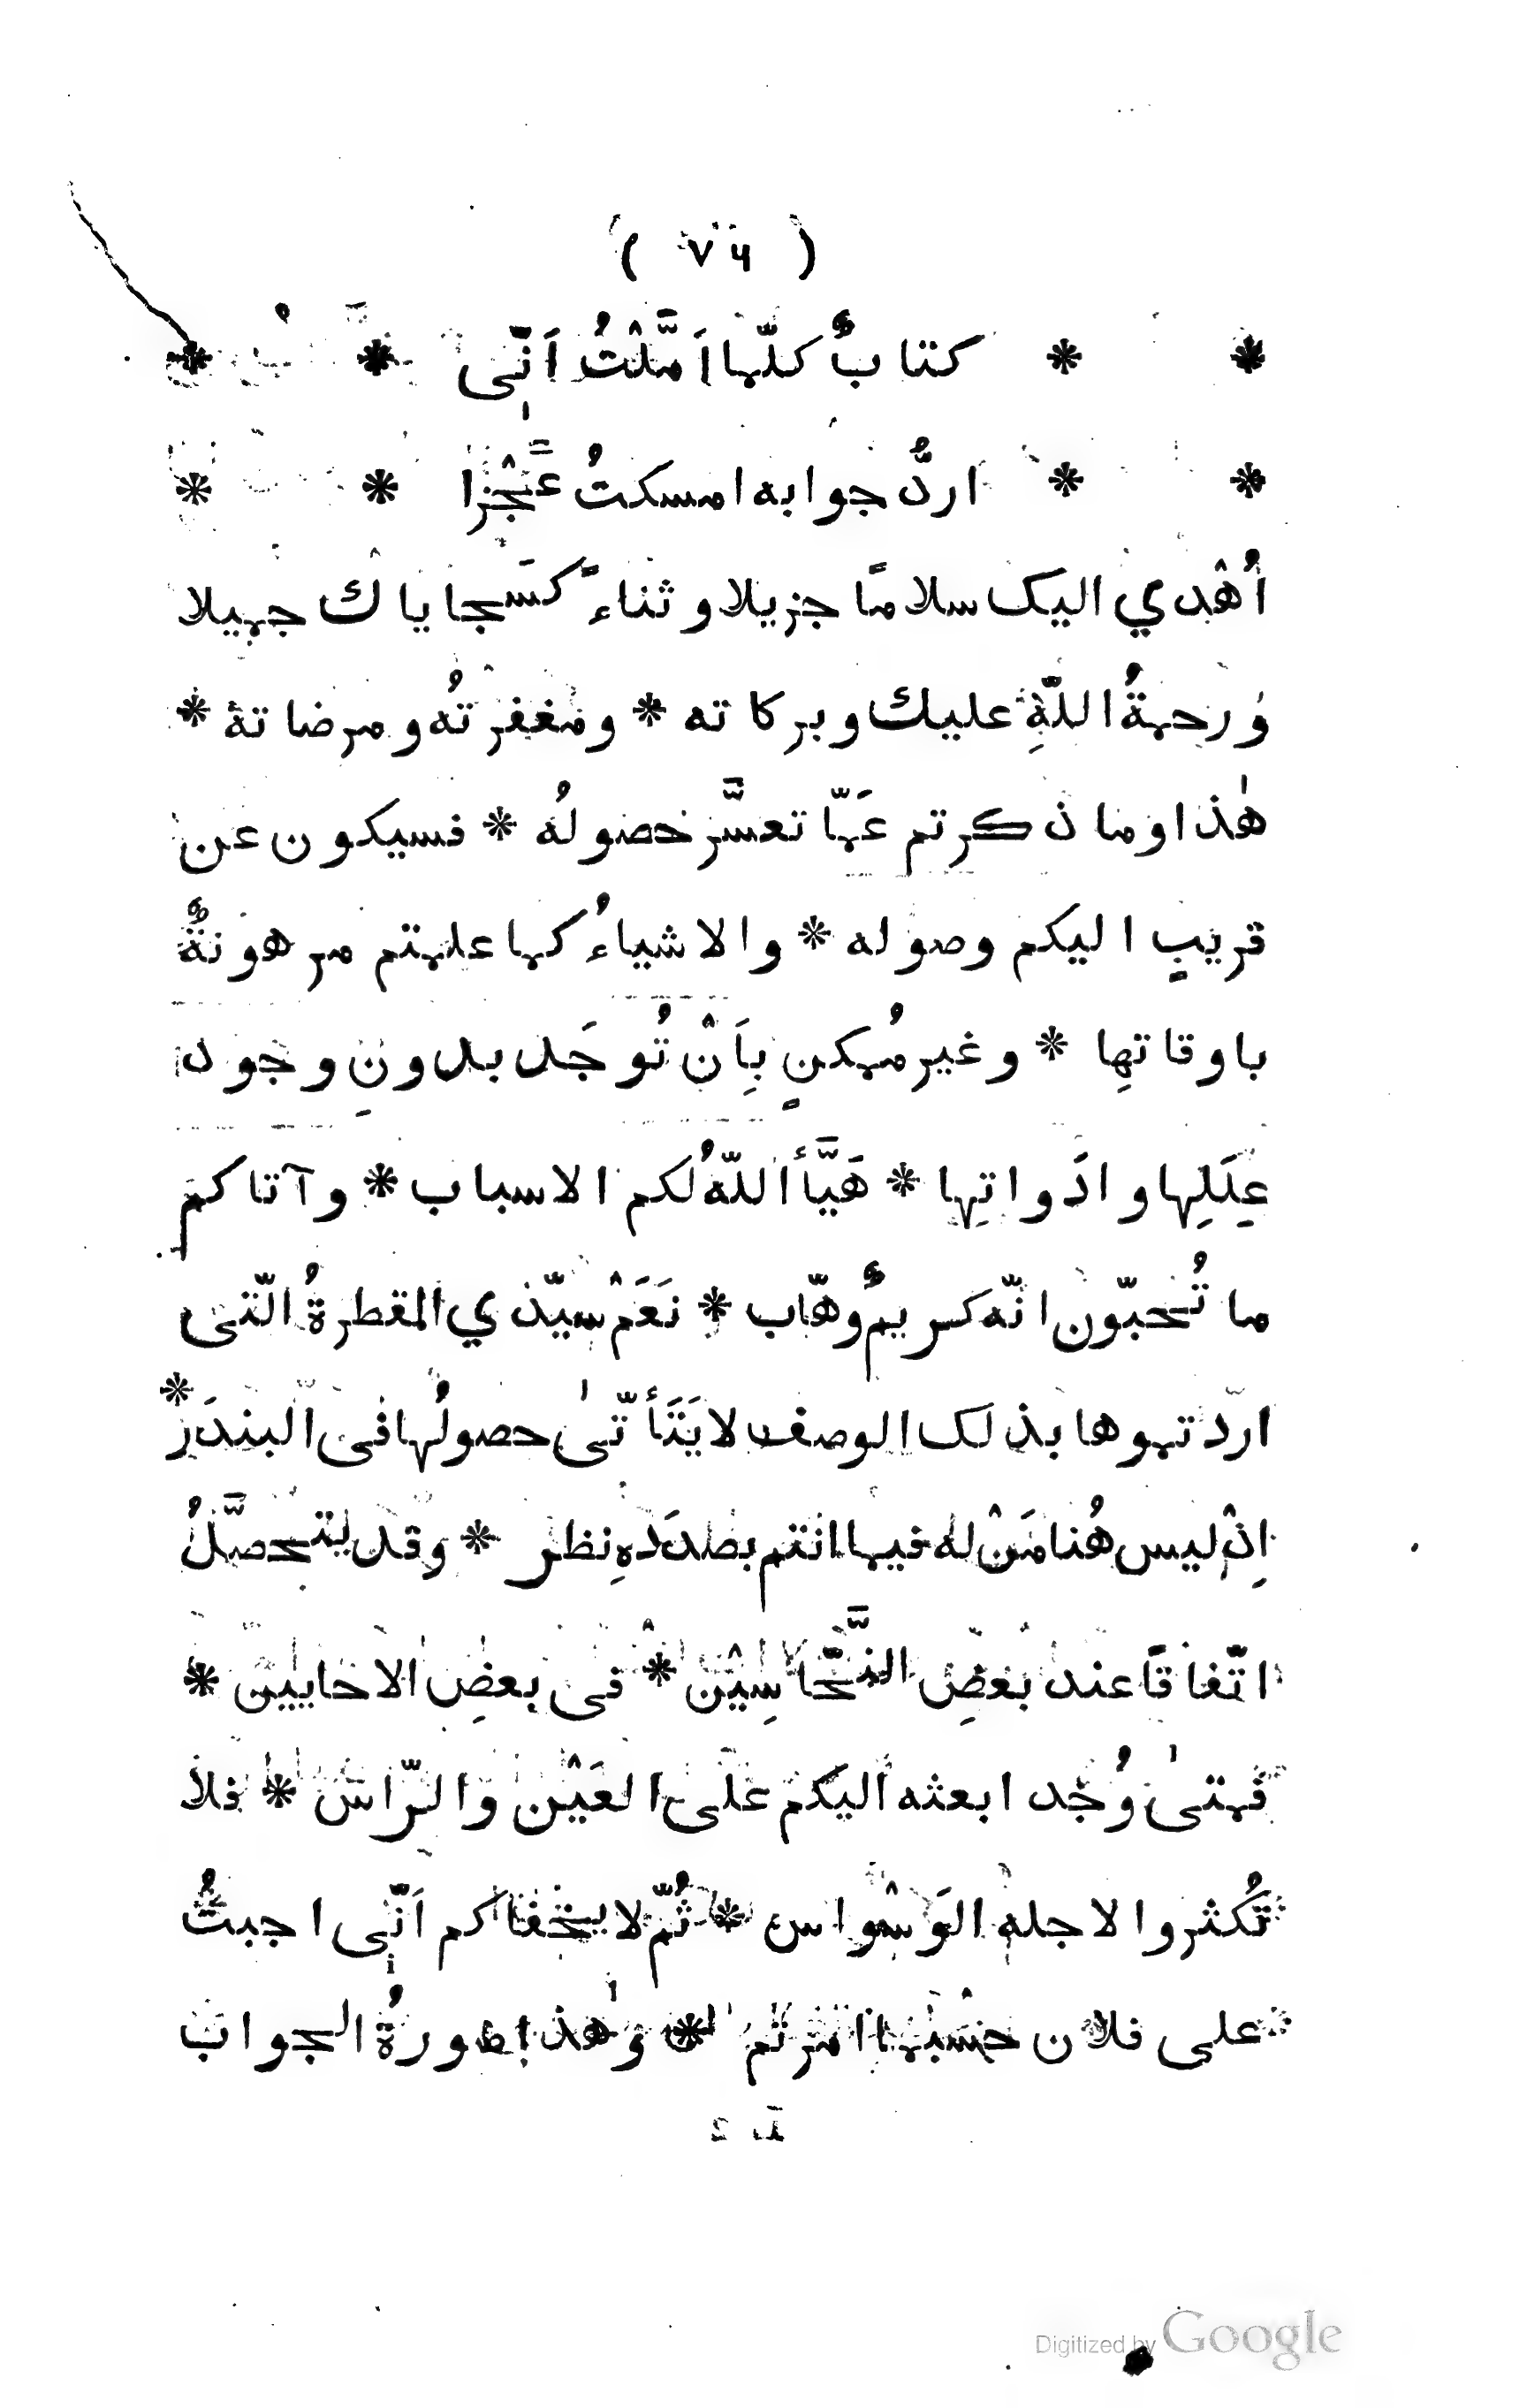 ( ٧٥ )
* * كتابٌ كلّما اَمَّلْتُ اَنِّى * *
* * اردُّ جوابه امسكتُ عَجْزا * *
اُهْدي اليک سلامًا جزيلا و ثناءً كسَجاياك جميلا
و رحمةُ اللّهِ عليك و بركاته * ومغفرتُه و مرضاته *
هٰذا وما ذكرتم عَمّا تعسَّر حصولُه * فسيكون عن
قريبٍ اليكم وصوله * والاشياءُ كما علمتم مرهونةٌ
باوقاتهِا * وغير مُمكنٍ بِاَنْ تُوجَد بدونِ وجود
عِلَلِها و ادَواتِها * هَيَّأ اللّهُ لكم الاسباب * و آتاكم
ما تُحبّون انّه كريمٌ وهّاب * نَعَمْ سيّدي المقطرةُ الّتى
اردتموها بذلک الوصف لا يَتَأتّىٰ حصولُها فى البندَر *
اِذْ ليس هُنا مَنْ له فيما انتم بصدَدهِ نظر * وقد يتحصَّلُ
اتّفاقًا عند بعضِ النَّحّاسِيْن * فى بعضِ الاحايين *
فمتىٰ وُجد ابعثه اليكم على العَيْن والرّاس * فلا
تُكثروا لاجله الوَسْواس * ثُمّ لا يخفاكم اَنّى اجبتُ
على فلان حسْبما امرتم * وهٰذا صورةُ الجواب
L 2
Digitized by Google